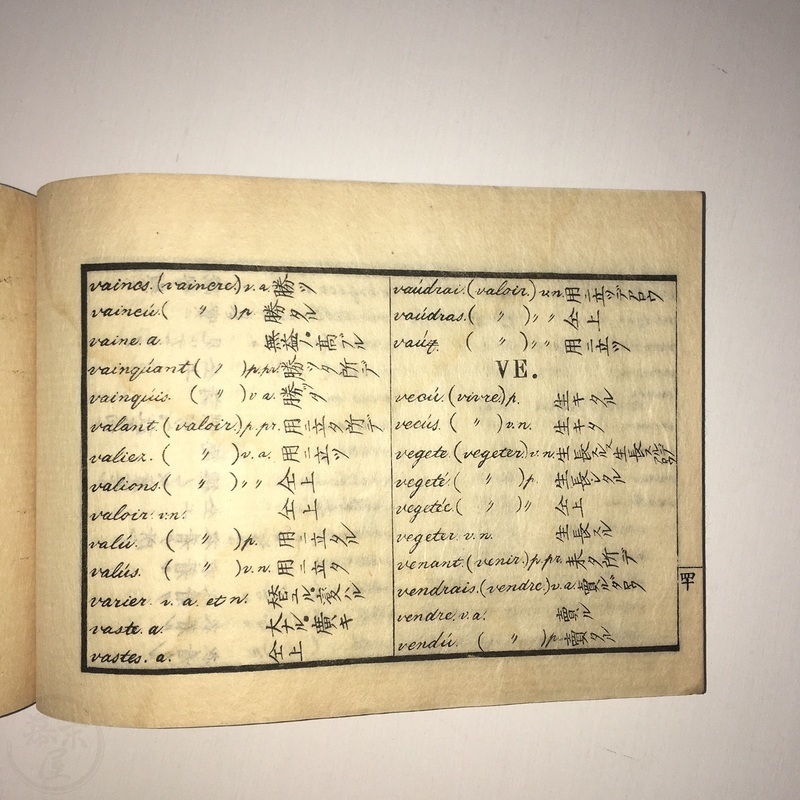 vaincs. (vaincre.) v. a. 勝ツ
vaincú. ( " ) p. 勝タル
vaine. a. 無益ノ。高ブル
vainqúant ( " ) p.pr. 勝ツタ所デ
vainqúis ( " ) v a. 勝ツタ
valant. (valoir.) p. pr. 用ニ立タ所デ
valiez. ( " ) v. a. 用ニ立ツ
valions. ( " ) " " 仝上
valoir. v.n. 仝上
valú. ( " ) p. 用ニ立タル
valús. ( " ) v. n. 用ニ立タ
varier. v. a. et n. 替ユル。変ハル
vaste. a. 大ナル。廣キ
vastes. a. 仝上
vaúdrai. (valoir.) v.n. 用ニ立ツデアロウ
vaúdras. ( " ) " " 仝上
vaúx. ( " ) " " 用ニ立ツ
VE.
vecú. (vivre.) p. 生キタル
vecús. ( " ) v. n. 生キタ
vegete. (vegeter.) v. n. 生長スル。生長スル
vegeté. ( " ) p. 生長シタル
vegetée. ( " ) " 仝上
vegeter. v. n. 生長スル
venant. (venir.) p. pr. 来タ所デ
vendrais. (vendre.) v. a. 賣ル
vendre. v. a. 賣ル
vendú. ( " ) p. 賣タル